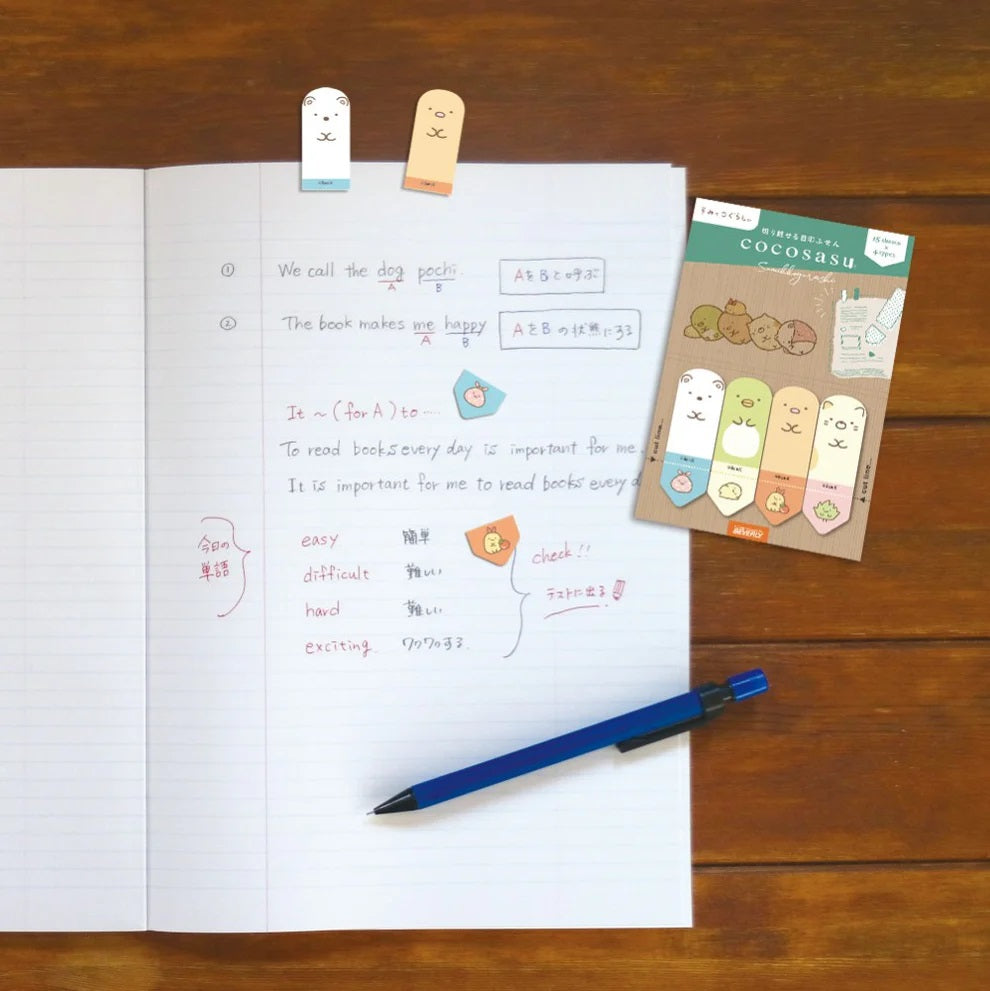 ① We call the dog pochi. AをBと呼ぶ
A B
② The book makes me happy AをBの状態にする
A B
It ~ (for A) to ....
To read books every day is important for me.
It is important for me to read books every d
今日の
単語
easy 簡単
difficult 難しい
hard 難しい
exciting ワクワクする.
check!!
テストに出る!
すみっコぐらし
切り離せる目印ふせん
cocosasu
Sumikkogurashi
15 sheets
×
4 types
cut line...
cut line...
BEVERLY